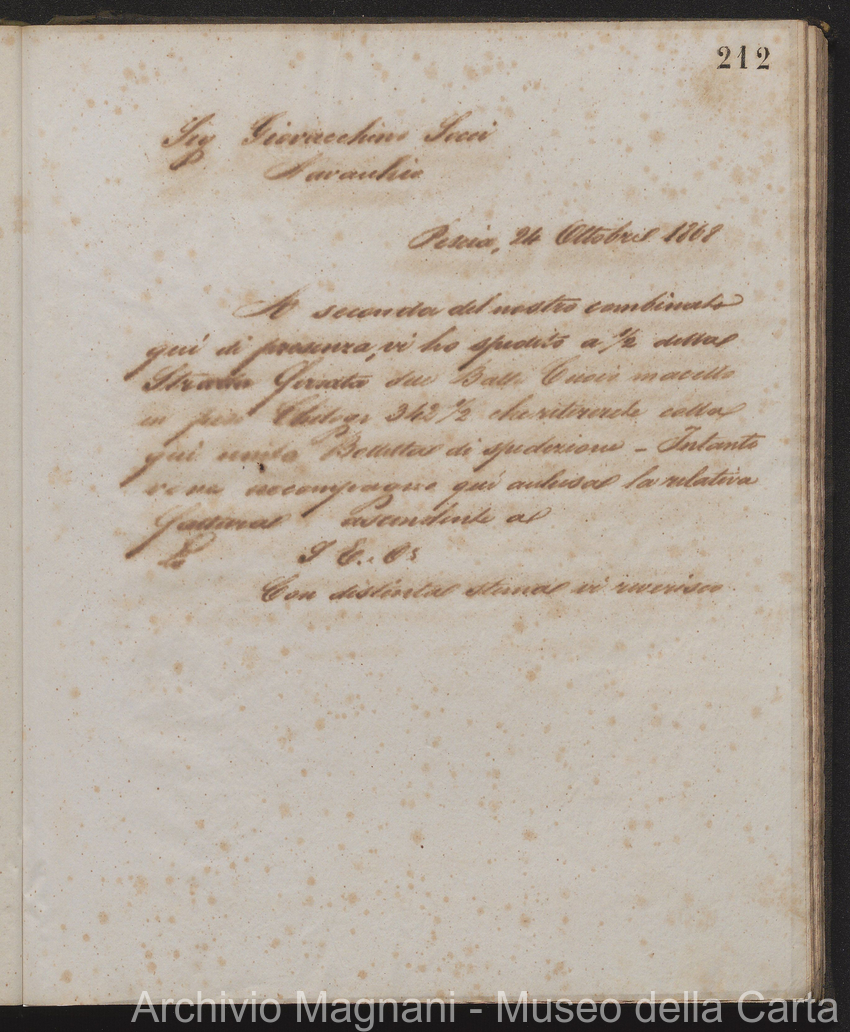 212
Sig Giovacchino Socci
Navacchio
Pescia, 24 Ottobre 1868
A seconda del nostro combinato
quì di presenza, vi ho spedito a 1/2 della
Strada Ferrata due Balle Cuoio macello
in peso Chilogr 342 1/2 che ritirerete colla
quì unita Bolletta di spedizione - Intanto
ve ne accompagno quì anchisa la relativa
fattura ascendente a
£ S E. O.
Con distinta stima vi riverisco
Archivio Magnani - Museo della Carta